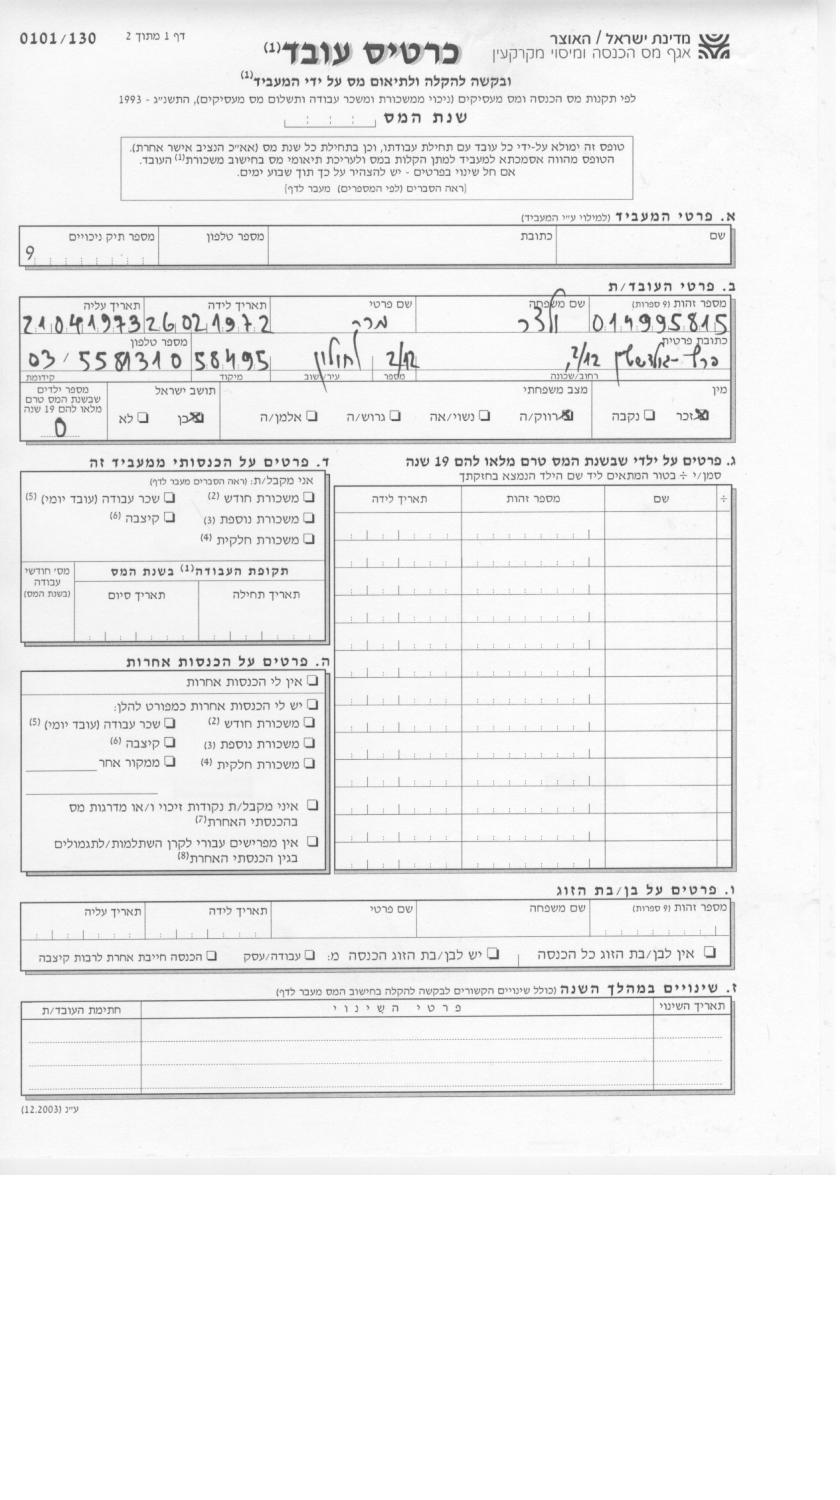 מדינת ישראל / האוצר
אגף מס הכנסה ומיסוי מקרקעין
דף 1 מתוך 2
0101/130
כרטיס עובד(1)
ובקשה להקלה ולתיאום מס על ידי המעביד(1)
לפי תקנות מס הכנסה ומס מעסיקים (ניכוי ממשכורת ומשכר עבודה ותשלום מס מעסיקים), התשנ״ג - 1993
שנת המס
טופס זה ימולא על-ידי כל עובד עם תחילת עבודתו, וכן בתחילת כל שנת מס (אא״כ הנציב אישר אחרת).
הטופס מהווה אסמכתא למעביד למתן הקלות במס ולעריכת תיאומי מס בחישוב משכורת(1) העובד.
אם חל שינוי בפרטים - יש להצהיר על כך תוך שבוע ימים.
[ראה הסברים (לפי המספרים) מעבר לדף]
א. פרטי המעביד (למילוי ע״י המעביד)
שם כתובת מספר טלפון מספר תיק ניכויים
9
ב. פרטי העובד/ת
מספר זהות (9 ספרות) שם משפחה שם פרטי תאריך לידה תאריך עליה
014995815 ולצר מרק 26021972 21041973
כתובת פרטית מספר טלפון
2/12 2/12 חולון 58495 03/5581310
רחוב/שכונה מספר עיר/ישוב מיקוד קידומת
מין מצב משפחתי תושב ישראל מספר ילדים שבשנת המס טרם מלאו להם 19 שנה
זכר נקבה רווק/ה נשוי/אה גרוש/ה אלמן/ה כן לא 0
ג. פרטים על ילדי שבשנת המס טרם מלאו להם 19 שנה
סמן/י ÷ בטור המתאים ליד שם הילד הנמצא בחזקתך
÷ שם מספר זהות תאריך לידה
ד. פרטים על הכנסותי ממעביד זה
אני מקבל/ת: (ראה הסברים מעבר לדף)
משכורת חודש (2) שכר עבודה (עובד יומי) (5)
משכורת נוספת (3) קיצבה (6)
משכורת חלקית (4)
תקופת העבודה(1) בשנת המס מס׳ חודשי עבודה (בשנת המס)
תאריך תחילה תאריך סיום
ה. פרטים על הכנסות אחרות
אין לי הכנסות אחרות
יש לי הכנסות אחרות כמפורט להלן:
משכורת חודש (2) שכר עבודה (עובד יומי) (5)
משכורת נוספת (3) קיצבה (6)
משכורת חלקית (4) ממקור אחר
איני מקבל/ת נקודות זיכוי ו/או מדרגות מס
בהכנסתי האחרת(7)
אין מפרישים עבורי לקרן השתלמות/לתגמולים
בגין הכנסתי האחרת(8)
ו. פרטים על בן/בת הזוג
מספר זהות (9 ספרות) שם משפחה שם פרטי תאריך לידה תאריך עליה
אין לבן/בת הזוג כל הכנסה יש לבן/בת הזוג הכנסה מ: עבודה/עסק הכנסה חייבת אחרת לרבות קיצבה
ז. שינויים במהלך השנה (כולל שינויים הקשורים לבקשה להקלה בחישוב המס מעבר לדף)
תאריך השינוי פרטי השינוי חתימת העובד/ת
ע״נ (12.2003)